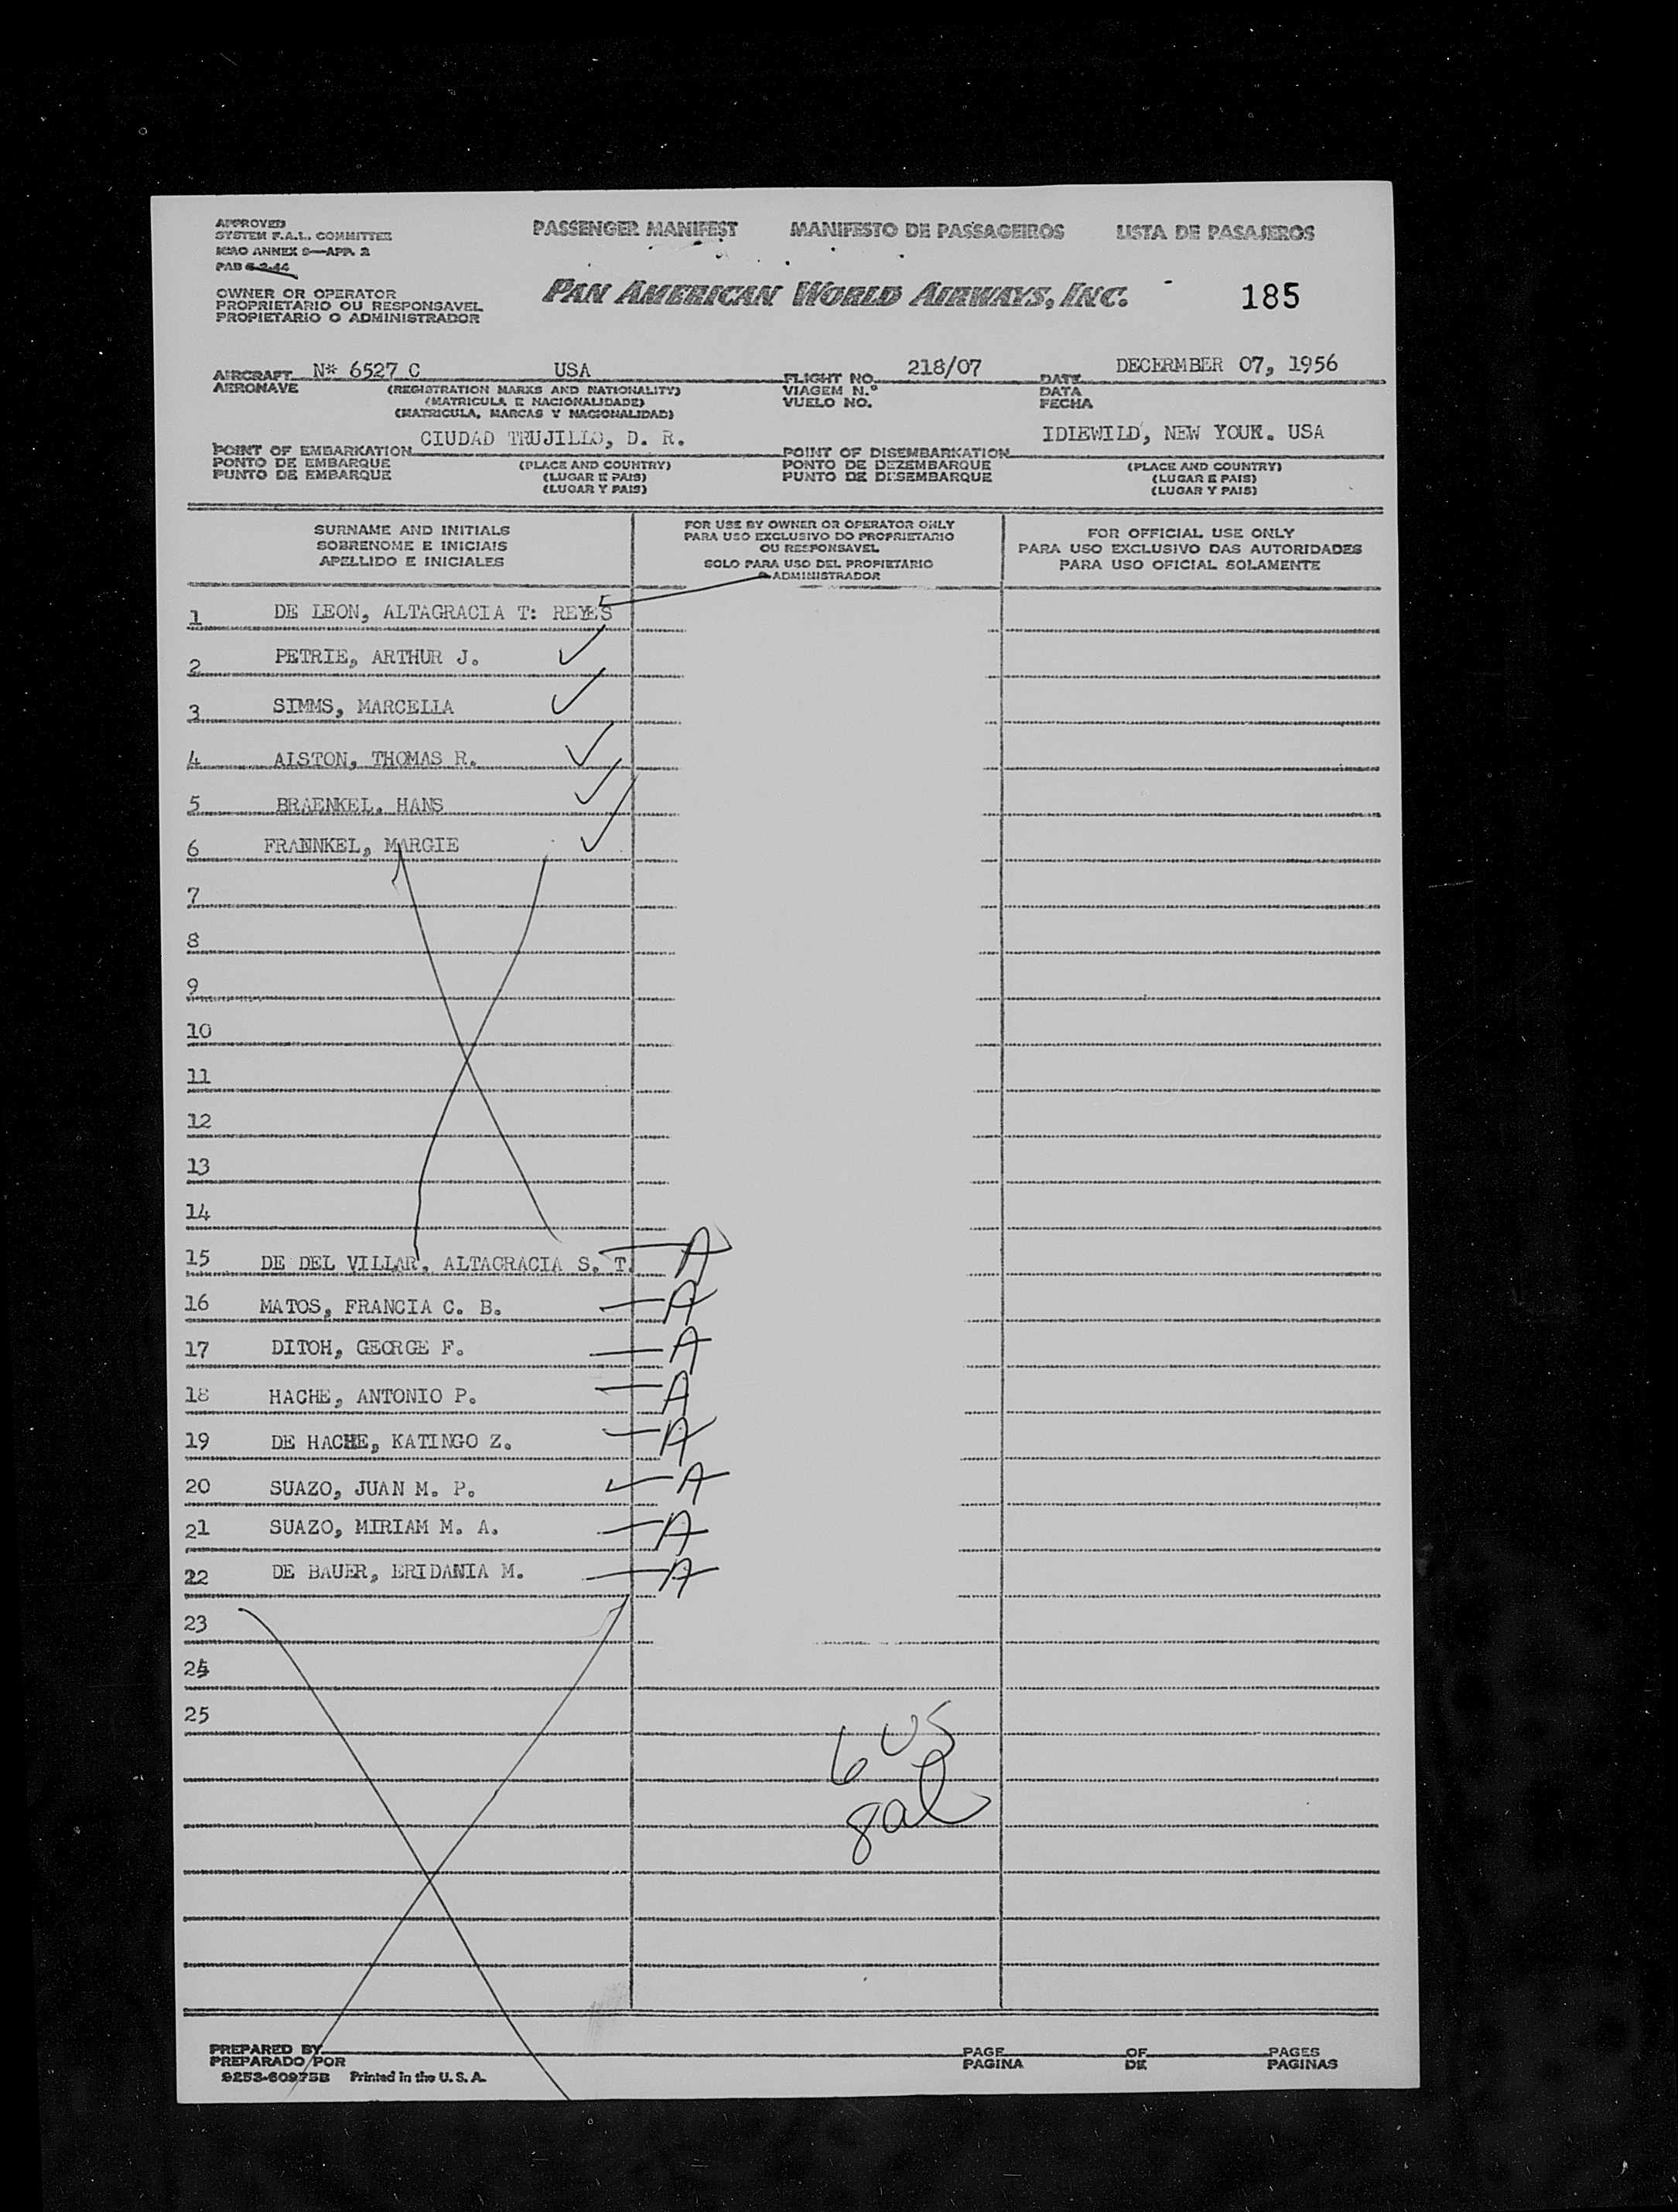 APPROVED
SYSTEM F.A.L. COMMITTEE
ICAO ANNEX 9—APP. 2
PAB 6-2-44
PASSENGER MANIFEST MANIFESTO DE PASSAGEIROS LISTA DE PASAJEROS
OWNER OR OPERATOR
PROPRIETARIO OU RESPONSAVEL
PROPIETARIO O ADMINISTRADOR
PAN AMERICAN WORLD AIRWAYS, INC. 185
AIRCRAFT N* 6527 C USA FLIGHT NO. 218/07 DATE DECERMBER 07, 1956
AERONAVE (REGISTRATION MARKS AND NATIONALITY) VIAGEM N.º DATA
(MATRICULA E NACIONALIDADE) VUELO NO. FECHA
(MATRICULA, MARCAS Y NACIONALIDAD)
POINT OF EMBARKATION CIUDAD TRUJILLO, D. R. POINT OF DISEMBARKATION IDIEWILD, NEW YOUK. USA
PONTO DE EMBARQUE (PLACE AND COUNTRY) PONTO DE DEZEMBARQUE (PLACE AND COUNTRY)
PUNTO DE EMBARQUE (LUGAR E PAIS) PUNTO DE DISEMBARQUE (LUGAR E PAIS)
(LUGAR Y PAIS) (LUGAR Y PAIS)
SURNAME AND INITIALS
SOBRENOME E INICIAIS
APELLIDO E INICIALES
FOR USE BY OWNER OR OPERATOR ONLY
PARA USO EXCLUSIVO DO PROPRIETARIO
OU RESPONSAVEL
SOLO PARA USO DEL PROPIETARIO
O ADMINISTRADOR
FOR OFFICIAL USE ONLY
PARA USO EXCLUSIVO DAS AUTORIDADES
PARA USO OFICIAL SOLAMENTE
1 DE LEON, ALTAGRACIA T: REYES
2 PETRIE, ARTHUR J.
3 SIMMS, MARCELLA
4 AISTON, THOMAS R.
5 BRAENKEL, HANS
6 FRAENKEL, MARGIE
7
8
9
10
11
12
13
14
15 DE DEL VILLAR, ALTAGRACIA S. T. A
16 MATOS, FRANCIA C. B. A
17 DITOH, GEORGE F. A
18 HACHE, ANTONIO P. A
19 DE HACHE, KATINGO Z. A
20 SUAZO, JUAN M. P. A
21 SUAZO, MIRIAM M. A. A
22 DE BAUER, ERIDANIA M. A
23
24
25
6 US
8 al
PREPARED BY PAGE OF PAGES
PREPARADO POR PAGINA DE PAGINAS
9253-60975B Printed in the U. S. A.